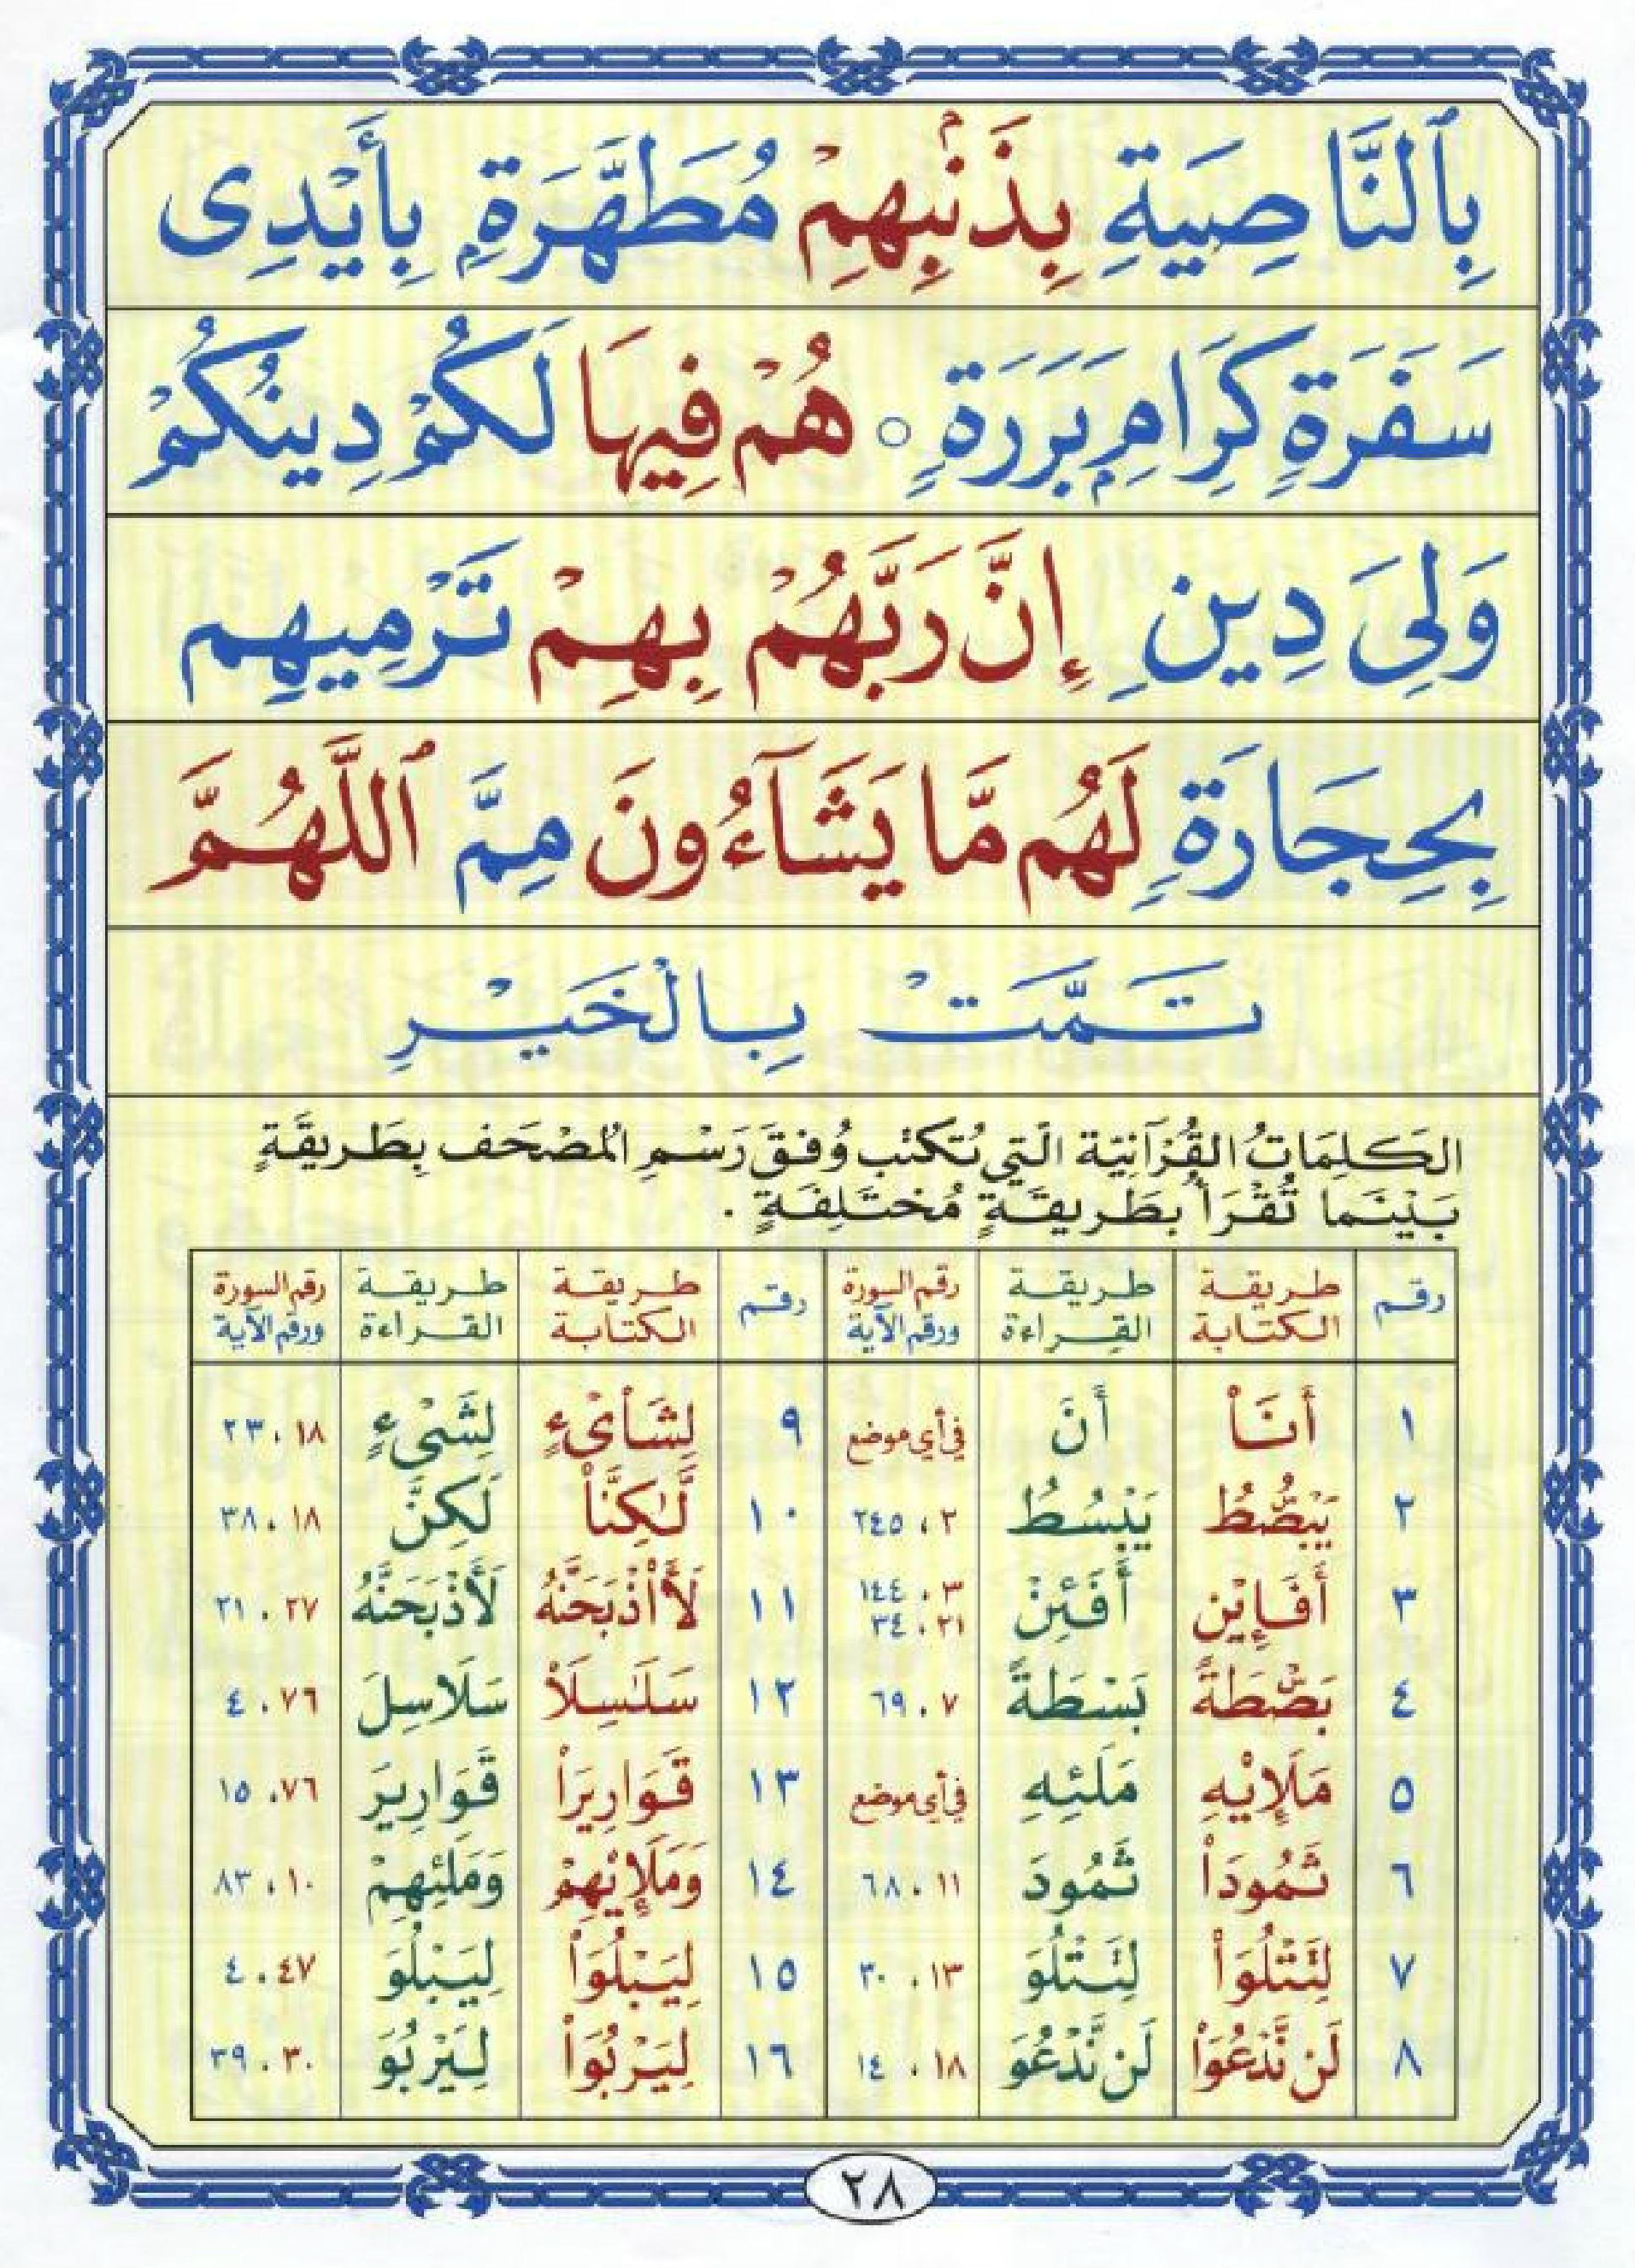 بِٱلنَّاصِيَةِ بِذَنۢبِهِمْ مُطَهَّرَةٍۭ بِأَيْدِى
سَفَرَةٍ كِرَامٍۭ بَرَرَةٍ ۝ هُمْ فِيهَا لَكُمْ دِينُكُمْ
وَلِىَ دِينِ إِنَّ رَبَّهُمْ بِهِمْ تَرْمِيهِم
بِحِجَارَةٍ لَهُم مَّا يَشَآءُونَ مِمَّ ٱللَّهُمَّ
تَمَّتْ بِالْخَيْرِ
الكَلِمَاتُ القُرْآنِيّة الَتِي تُكتَب وُفقَ رَسْمِ المُصْحَف بِطَريقَةٍ
بَيْنَما تُقْرَأُ بطَريقَةٍ مُختَلِفَةٍ .
رقم طريقة الكتابة طريقة القراءة رقم السورة ورقم الآية رقم طريقة الكتابة طريقة القراءة رقم السورة ورقم الآية
١ أَنَا۠ أَنَ في أي موضع ٩ لِشَا۠ىْءٍ لِشَىْءٍ ١٨ ، ٢٣
٢ يَبْصُۜطُ يَبْسُطُ ٢ ، ٢٤٥ ١٠ لَّٰكِنَّا۠ لَكِنَّ ١٨ ، ٣٨
٣ أَفَإِي۟ن أَفَئِنْ ٣ ، ١٤٤ ٢١ ، ٣٤ ١١ لَأَا۟ذْبَحَنَّهُ لَأَذْبَحَنَّهُ ٢٧ ، ٢١
٤ بَصْۜطَةً بَسْطَةً ٧ ، ٦٩ ١٢ سَلَٰسِلَا۟ سَلَاسِلَ ٧٦ ، ٤
٥ مَلَإِي۟هِ مَلَئِهِ في أي موضع ١٣ قَوَارِيرَا۟ قَوَارِيرَ ٧٦ ، ١٥
٦ ثَمُودَا۟ ثَمُودَ ١١ ، ٦٨ ١٤ وَمَلَإِي۟هِمْ وَمَلَئِهِمْ ١٠ ، ٨٣
٧ لِتَتْلُوَا۟ لِتَتْلُوَ ١٣ ، ٣٠ ١٥ لِيَبْلُوَا۟ لِيَبْلُوَ ٤٧ ، ٤
٨ لَن نَّدْعُوَا۟ لَن نَّدْعُوَ ١٨ ، ١٤ ١٦ لِيَرْبُوَا۟ لِيَرْبُوَ ٣٠ ، ٣٩
٢٨